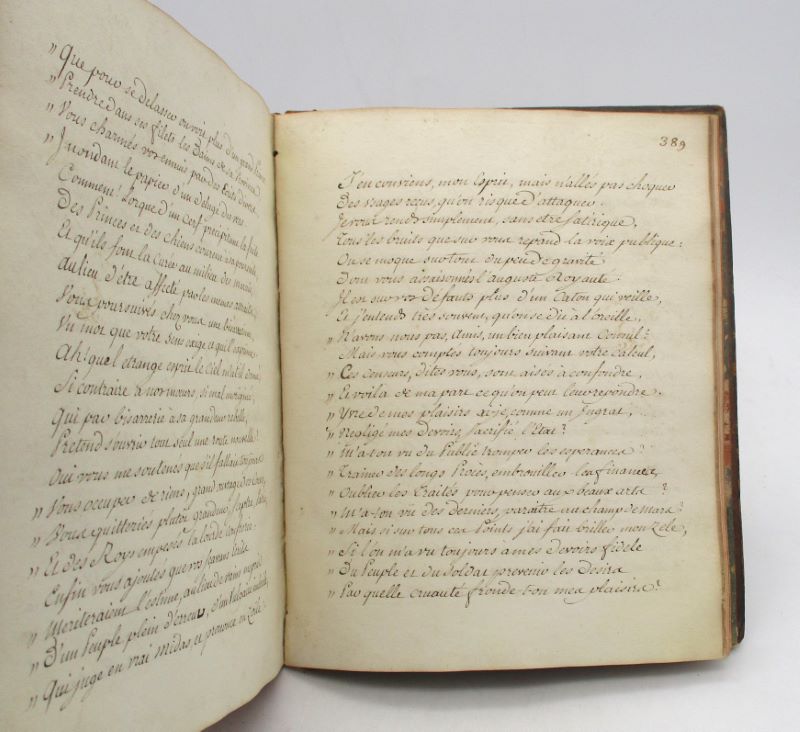 „ Que pour se delasser on voit plus d'un grand
„ Prendre dans ses filets les
„ Vous charmés vos ennuis par des
„ Inondant le papier d'un deluge de vers.
Comment! Lorsque d'un cerf précipitant la fuite
Des Princes et des chiens courent à sa poursuite,
Et qu'ils font la Curée au milieu des marais,
au lieu d'être affecté par les memes
Vous poursuivés chez vous une
Un mot que votre sens exige et qu'il
Ah! quel etrange esprit le Ciel m'a-t-il donné,
Si contraire à nos mœurs, si mal
Qui par bisarrerie à sa grandeur rebelle,
Pretend s'ouvrir tout seul une route nouvelle!
Qui vous me soutenes que s'il fallait toujours
„ Vous occuper de rimes, grand
„ Vous quitteriés plutôt grandeur, sceptre,
„ Et des Roys empesés la lourde
Enfin vous ajoutes que vos
„ Meriteraient l'estime, au lieu de vains mepris
„ D'un Peuple plein d'erreur,
„ Qui juge en vrai Midas, et prononce en Zoïle.
389
J'en conviens, mon Esprit, mais n'allés pas choquer
Des usages reçus, qu'on risque d'attaquer.
Je vous rends simplement, sans etre satirique,
Tous les bruits que sur vous repand la voix publique:
On se moque surtout du peu de gravité
Dont vous assaisonnés l'auguste Royauté.
Il est sur vos defauts plus d'un Caton qui veille,
Et j'entends tres souvent, qu'on se dit à l'oreille,
„ N'avons nous pas, Amis, un bien plaisant Consul?
Mais vous comptes toujours suivant votre Calcul,
„ Ces censeurs, dites vous, sont aisés à confondre,
„ Et voila de ma part ce qu'on peut leur repondre.
„ Yvre de mes plaisirs ai-je, comme un Ingrat,
„ Negligé mes Devoirs, sacrifié l'Etat?
„ M'a-t-on vu du Public tromper les esperances?
„ Trainer des longs Procès, embrouiller les finances,
„ Oublier les Traités pour penser aux beaux arts?
„ M'a-t-on vu des derniers, paraitre au champ de Mars?
„ Mais si sur tous ces Points j'ai fait briller mon Zele,
„ Si l'on m'a vu toujours à mes devoirs fidele
„ Du Peuple et du Soldat prevenir les desirs
„ Par quelle cruauté fronde-t-on mes plaisirs?